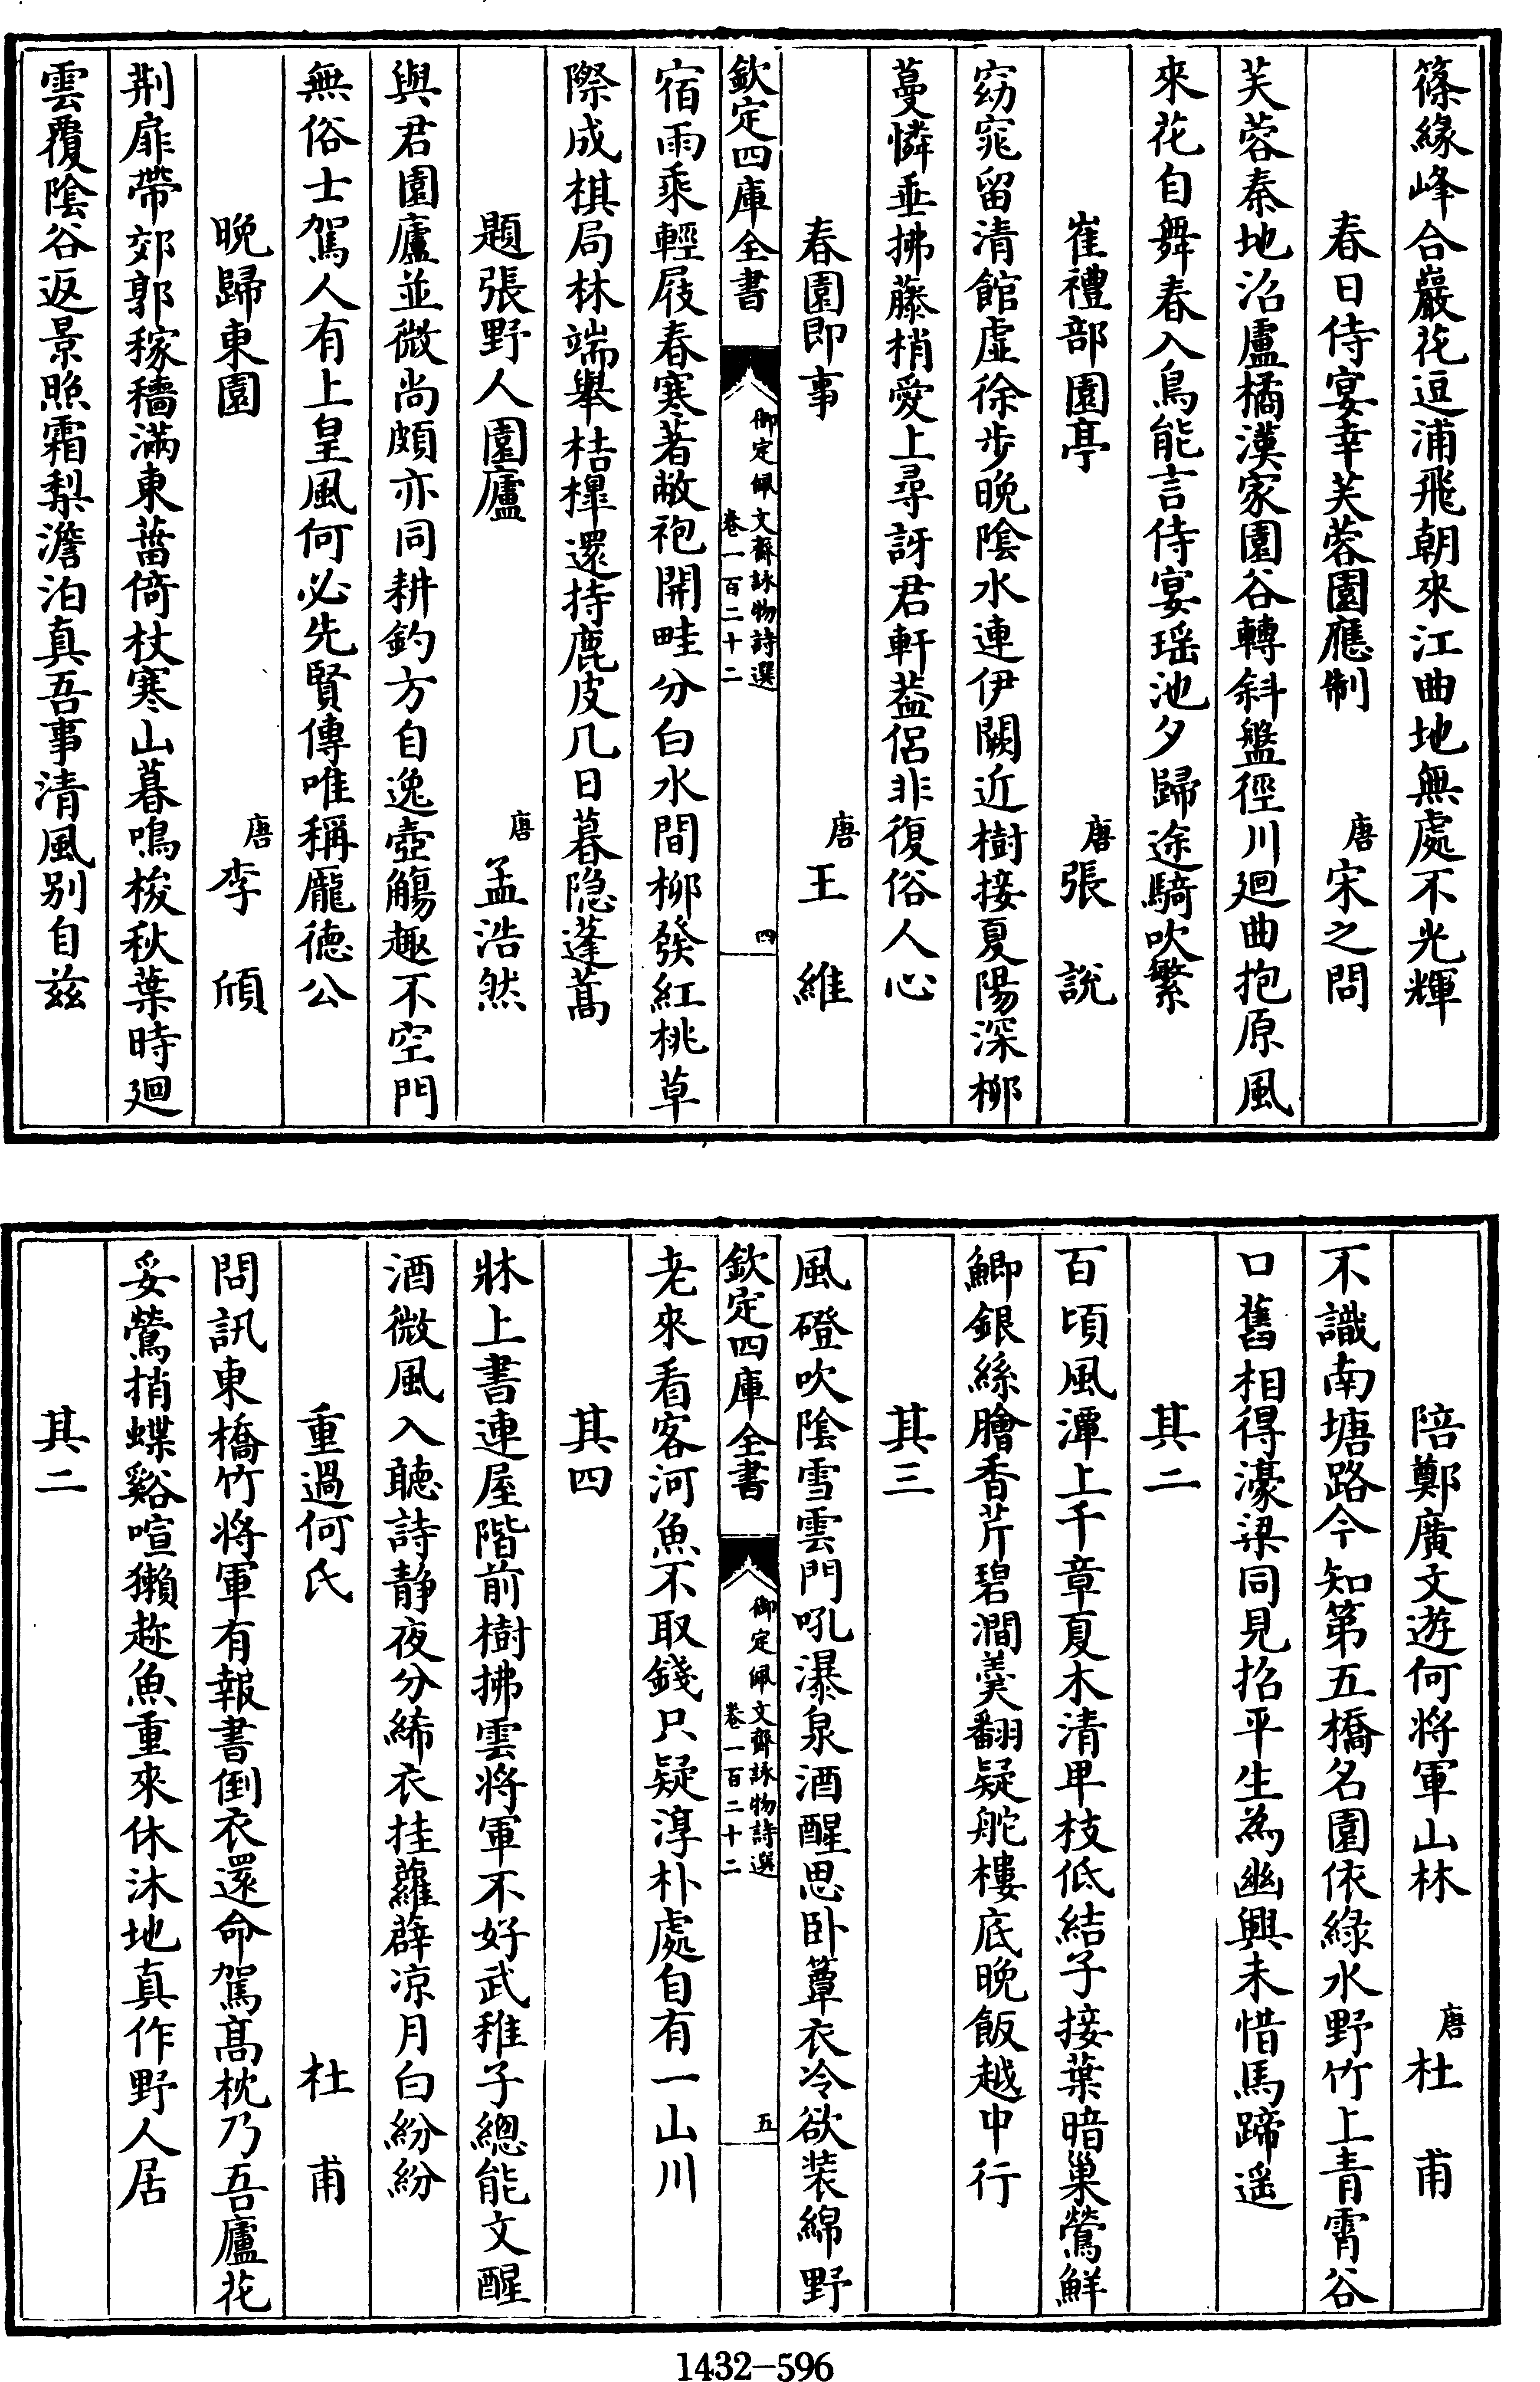 篠緣峰合巖花逗浦飛朝來江曲地無處不光輝
春日侍宴幸芙蓉園應制 唐 宋之問
芙蓉秦地沼盧橘漢家園谷轉斜盤徑川廻曲抱原風
來花自舞春入鳥能言侍宴瑶池夕歸途騎吹繁
崔禮部園亭 唐 張說
窈窕留清館虛徐步晚陰水連伊闕近樹接夏陽深柳
蔓憐垂拂藤梢愛上尋訝君軒葢侶非復俗人心
春園即事 唐 王維
欽定四庫全書 御定佩文齋詠物詩選 卷一百二十二 四
宿雨乘輕屐春寒著敝袍開畦分白水間柳發紅桃草
際成棋局林端舉桔橰還持鹿皮几日暮隐蓬蒿
題張野人園廬 唐 孟浩然
與君園廬並微尚頗亦同耕釣方自逸壺觴趣不空門
無俗士駕人有上皇風何必先賢傳唯稱龎德公
晚歸東園 唐 李頎
荆扉帶郊郭稼穡滿東菑倚杖寒山暮鳴梭秋葉時廻
雲覆陰谷返景照霜梨澹泊真吾事清風别自兹
陪鄭廣文遊何將軍山林 唐 杜甫
不識南塘路今知第五橋名園依綠水野竹上青霄谷
口舊相得濠梁同見招平生為幽興未惜馬蹄遥
其二
百頃風潭上千章夏木清卑枝低結子接葉暗巢鶯鮮
鯽銀絲膾香芹碧澗羹翻疑舵樓底晚飯越中行
其三
風磴吹陰雪雲門吼瀑泉酒醒思卧簟衣冷欲裝綿野
欽定四庫全書 御定佩文齋詠物詩選 卷一百二十二 五
老來看客河魚不取錢只疑淳朴處自有一山川
其四
牀上書連屋階前樹拂雲將軍不好武稚子總能文醒
酒微風入聽詩靜夜分絺衣挂蘿薜凉月白紛紛
重過何氏 杜甫
問訊東橋竹將軍有報書倒衣還命駕髙枕乃吾廬花
妥鶯捎蝶谿喧獺趂魚重來休沐地真作野人居
其二
1432-596